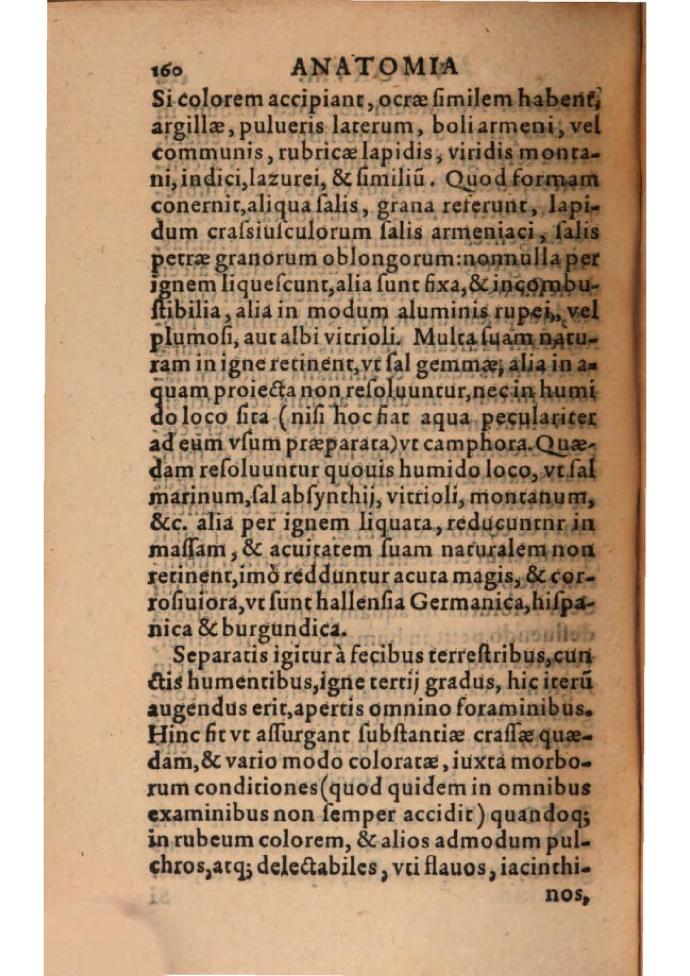 160 ANATOMIA
Si colorem accipiant, ocræ ſimilem habent,
argillæ, pulueris laterum, boli armeni, vel
communis, rubricæ lapidis, viridis monta-
ni, indici, lazurei, & ſimiliũ. Quod formam
conernit, aliqua ſalis, grana referunt, lapi-
dum craſsiuſculorum ſalis armeniaci, ſalis
petræ granorum oblongorum: nonnulla per
ignem liqueſcunt, alia ſunt fixa, & incombu-
ſtibilia, alia in modum aluminis rupei, vel
plumoſi, aut albi vitrioli. Multa ſuam natu-
ram in igne retinent, vt ſal gemmæ; alia in a-
quam proiecta non reſoluuntur, nec in humi
do loco ſita (niſi hoc fiat aqua peculariter
ad eum vſum præparata) vt camphora. Quæ-
dam reſoluuntur quouis humido loco, vt ſal
marinum, ſal abſynthij, vitrioli, montanum,
&c. alia per ignem liquata, reducuntnr in
maſſam, & acuitatem ſuam naturalem non
retinent, imò redduntur acuta magis, & cor-
roſiuiora, vt ſunt hallenſia Germanica, hiſpa-
nica & burgundica.
Separatis igitur à fecibus terreſtribus, cun
ctis humentibus, igne tertij gradus, hic iterũ
augendus erit, apertis omnino foraminibus.
Hinc fit vt aſſurgant ſubſtantiæ craſſæ quæ-
dam, & vario modo coloratæ, iuxta morbo-
rum conditiones (quod quidem in omnibus
examinibus non ſemper accidit) quandoq;
in rubeum colorem, & alios admodum pul-
chros, atq; delectabiles, vti flauos, iacinthi-
nos,